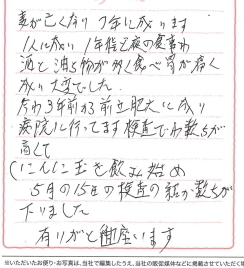 妻が亡くなり7年に成ります
1人に成い1年程夜の食事わ
酒と油っ物が多く食べ胃が痛く
成い大変でした
今わ3年前から前立肥大に成り
病院に行ってます検査でわ数ちが
高くて
にんにく玉を飲み始め
5月の15日の検査の結か数ちが
下りました
有りがと御座います
※いただいたお便り・お写真は、当社で編集したうえ、当社の販促媒体などに掲載させていただく場